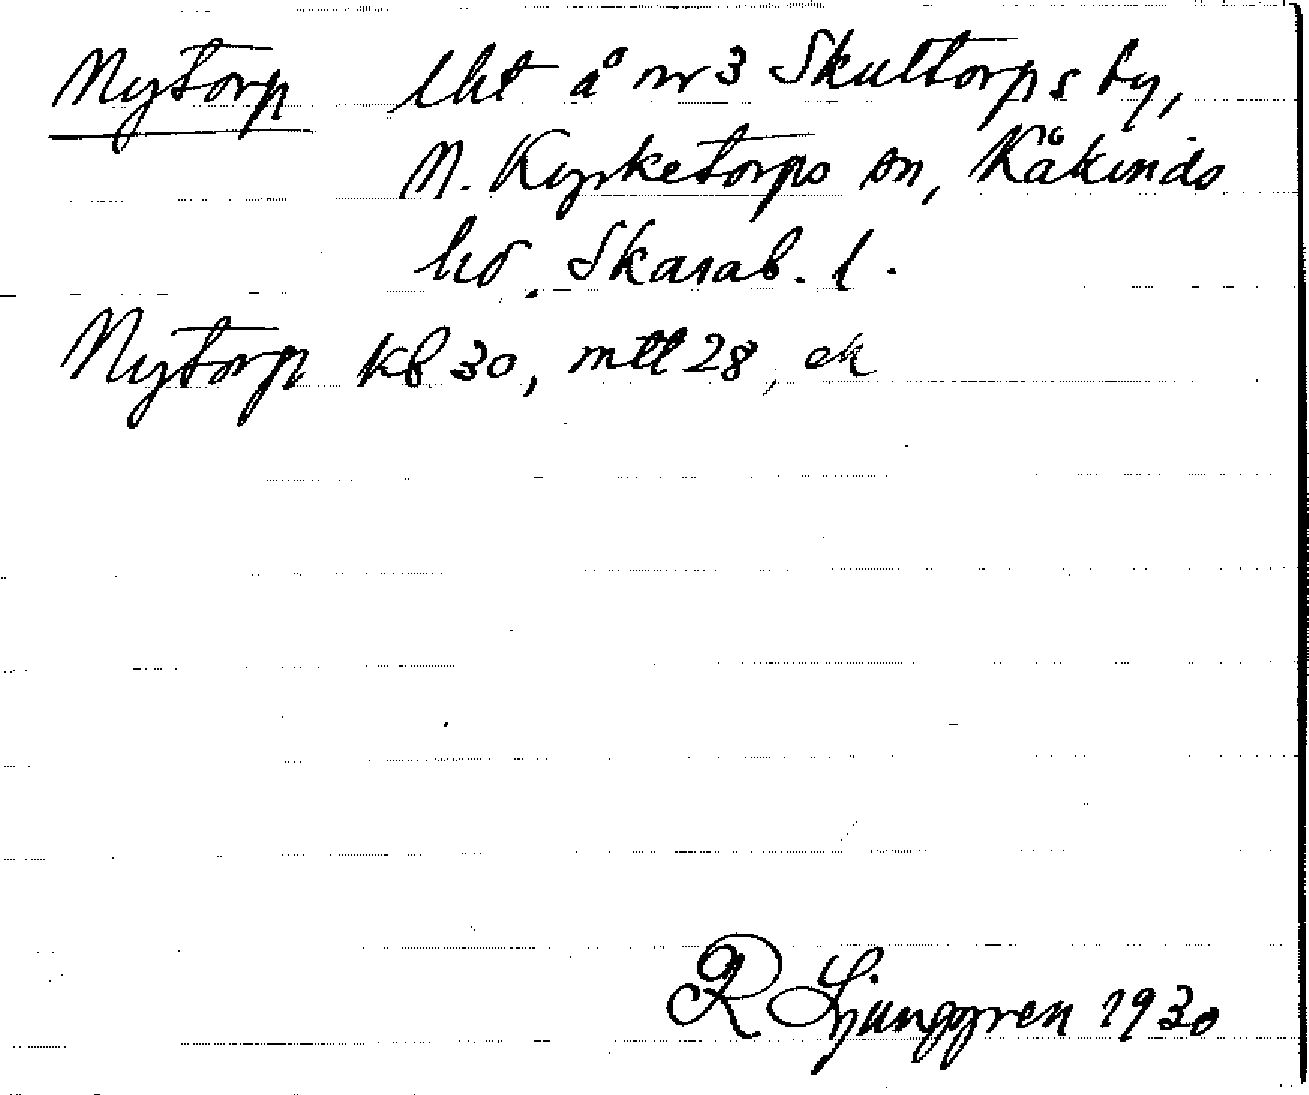 Nytorp lht å nr 3 Skultorps by,
N. Kyrketorps sn, Kåkinds
hd. Skarab. l.
Nytorp kb 30, mtl 28, ek
R Ljunggren 1930